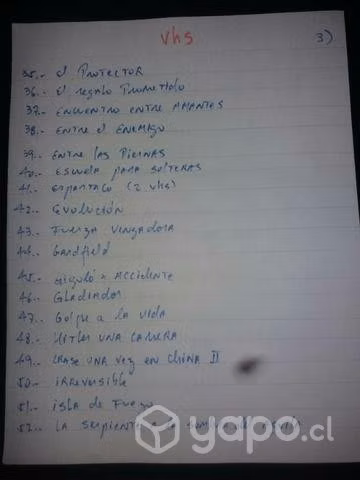 vhs
3)
35.- el PROTECTOR
36.- El regalo Prometido
37.- ENCUENTRO ENTRE AMANTES
38.- ENTRE el ENEMIGO
39.- ENTRE LAS PIERNAS
40.- ESCUELA PARA SOLTERAS
41.- ESPARTACO (2. vhs)
42.- EVOLUCIÓN
43.- FUERZA VENGADORA
44.- GARDFIELD
45.- GIGOLÓ X ACCIDENTE
46.- GLADIADOR
47.- GOLPE A LA VIDA
48.- HITLER UNA CARRERA
49.- ERASE UNA VEZ EN CHINA II
50.- IRREVERSIBLE
51.- ISLA de FUEGO
52.- LA SERPIENTE A LA SOMBRA
yapo.cl